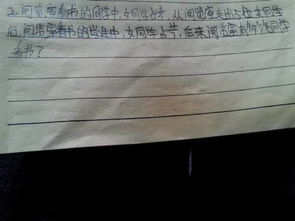 2. 阅览室看书的同学中,女同学占,从阅览室走出5位女同学
后,阅览室看书的学生中,女同学占,后来阅览室有多少名同学
看书?